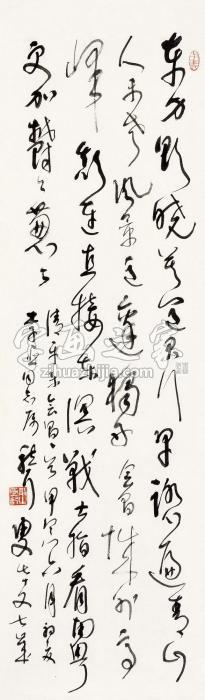 东方欲晓莫道君行早踏遍青山
人未老风景这边独好会昌城外高
峰颠连直接东溟战士指看南粤
更加郁々葱々
清平乐会昌一首甲寅六月
同志属
叟七十又七岁